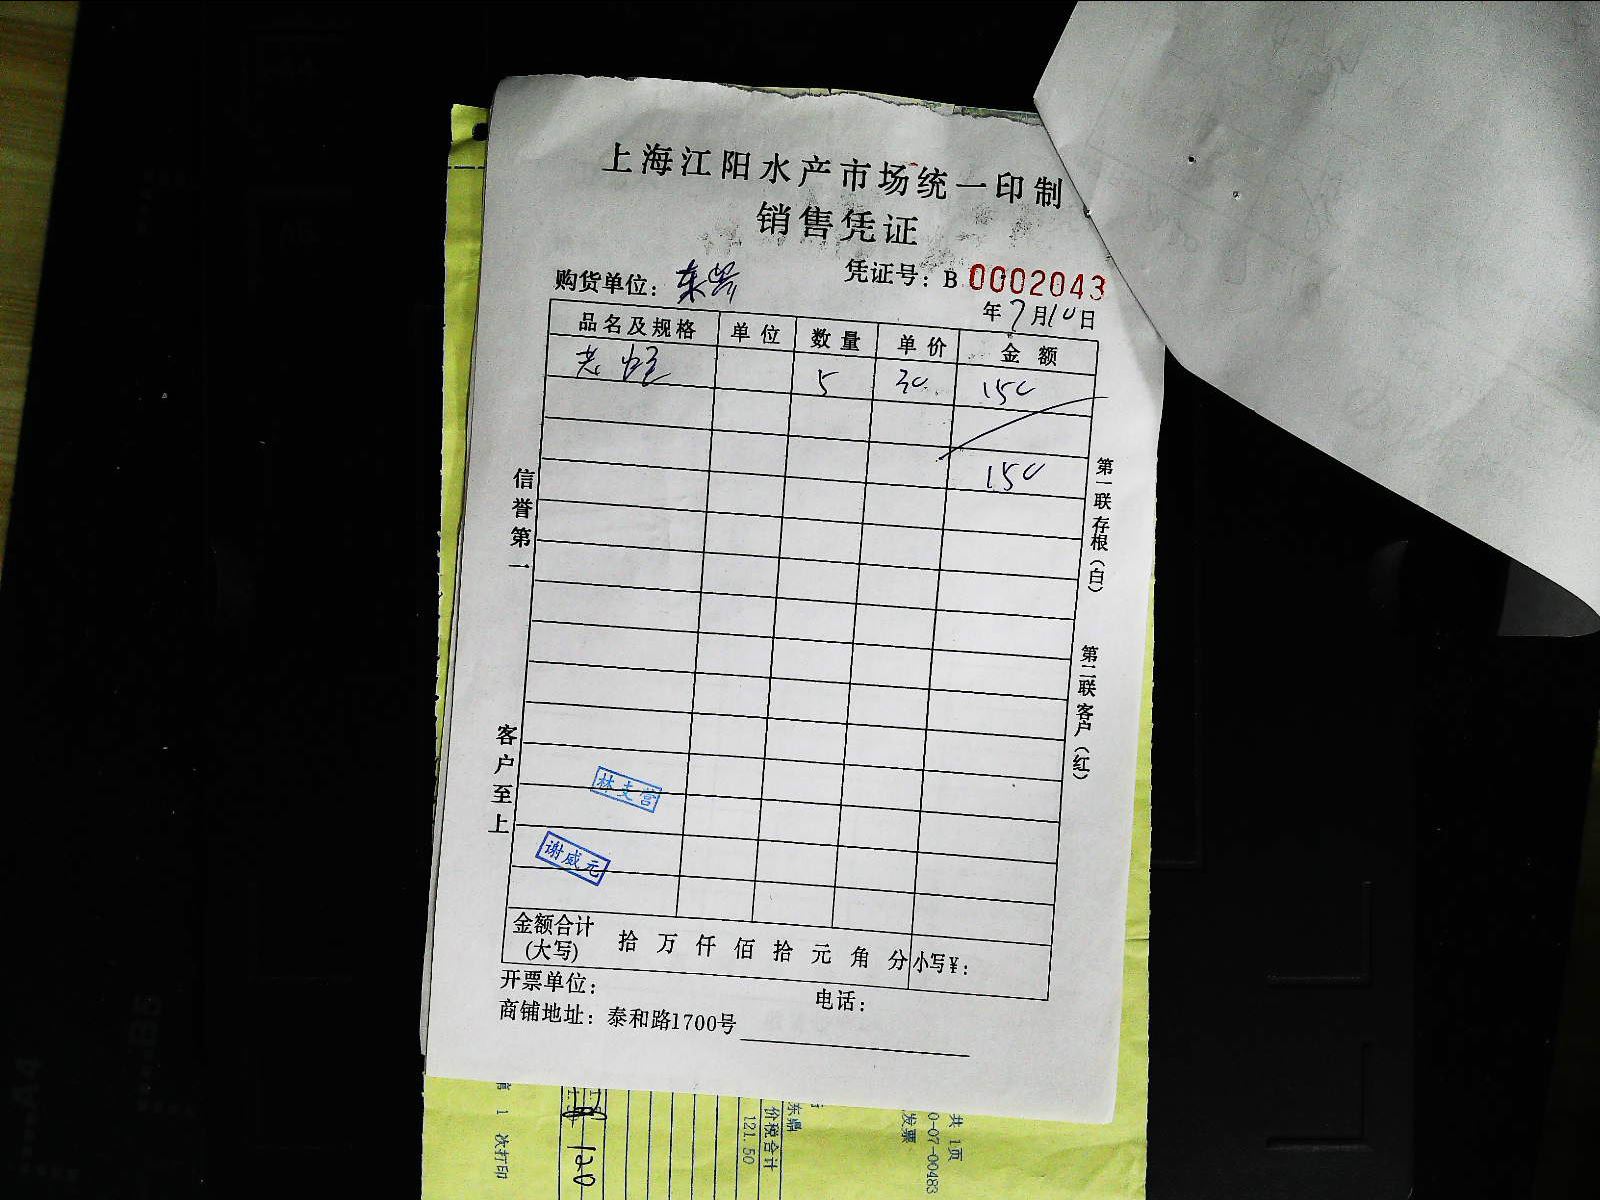 上海江阳水产市场统一印制
销售凭证
购货单位：东鼎
凭证号：B 0002043
年7月10日
品名及规格 单位 数量 单价 金额
5 30 150
150
信誉第一
客户至上
第一联存根（白）
第二联客户（红）
林支营
谢威元
金额合计(大写) 拾万仟佰拾元角分 小写¥：
开票单位：
电话：
商铺地址：泰和路1700号
第 1 次打印
120
价税合计
121.50
东鼎
发票
0-07-00483
共 1页